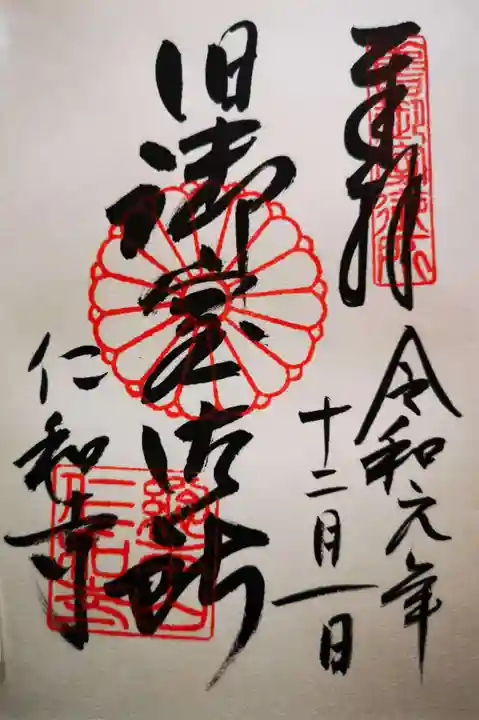 奉拝
令和元年
十二月一日
旧御室御所
仁和寺